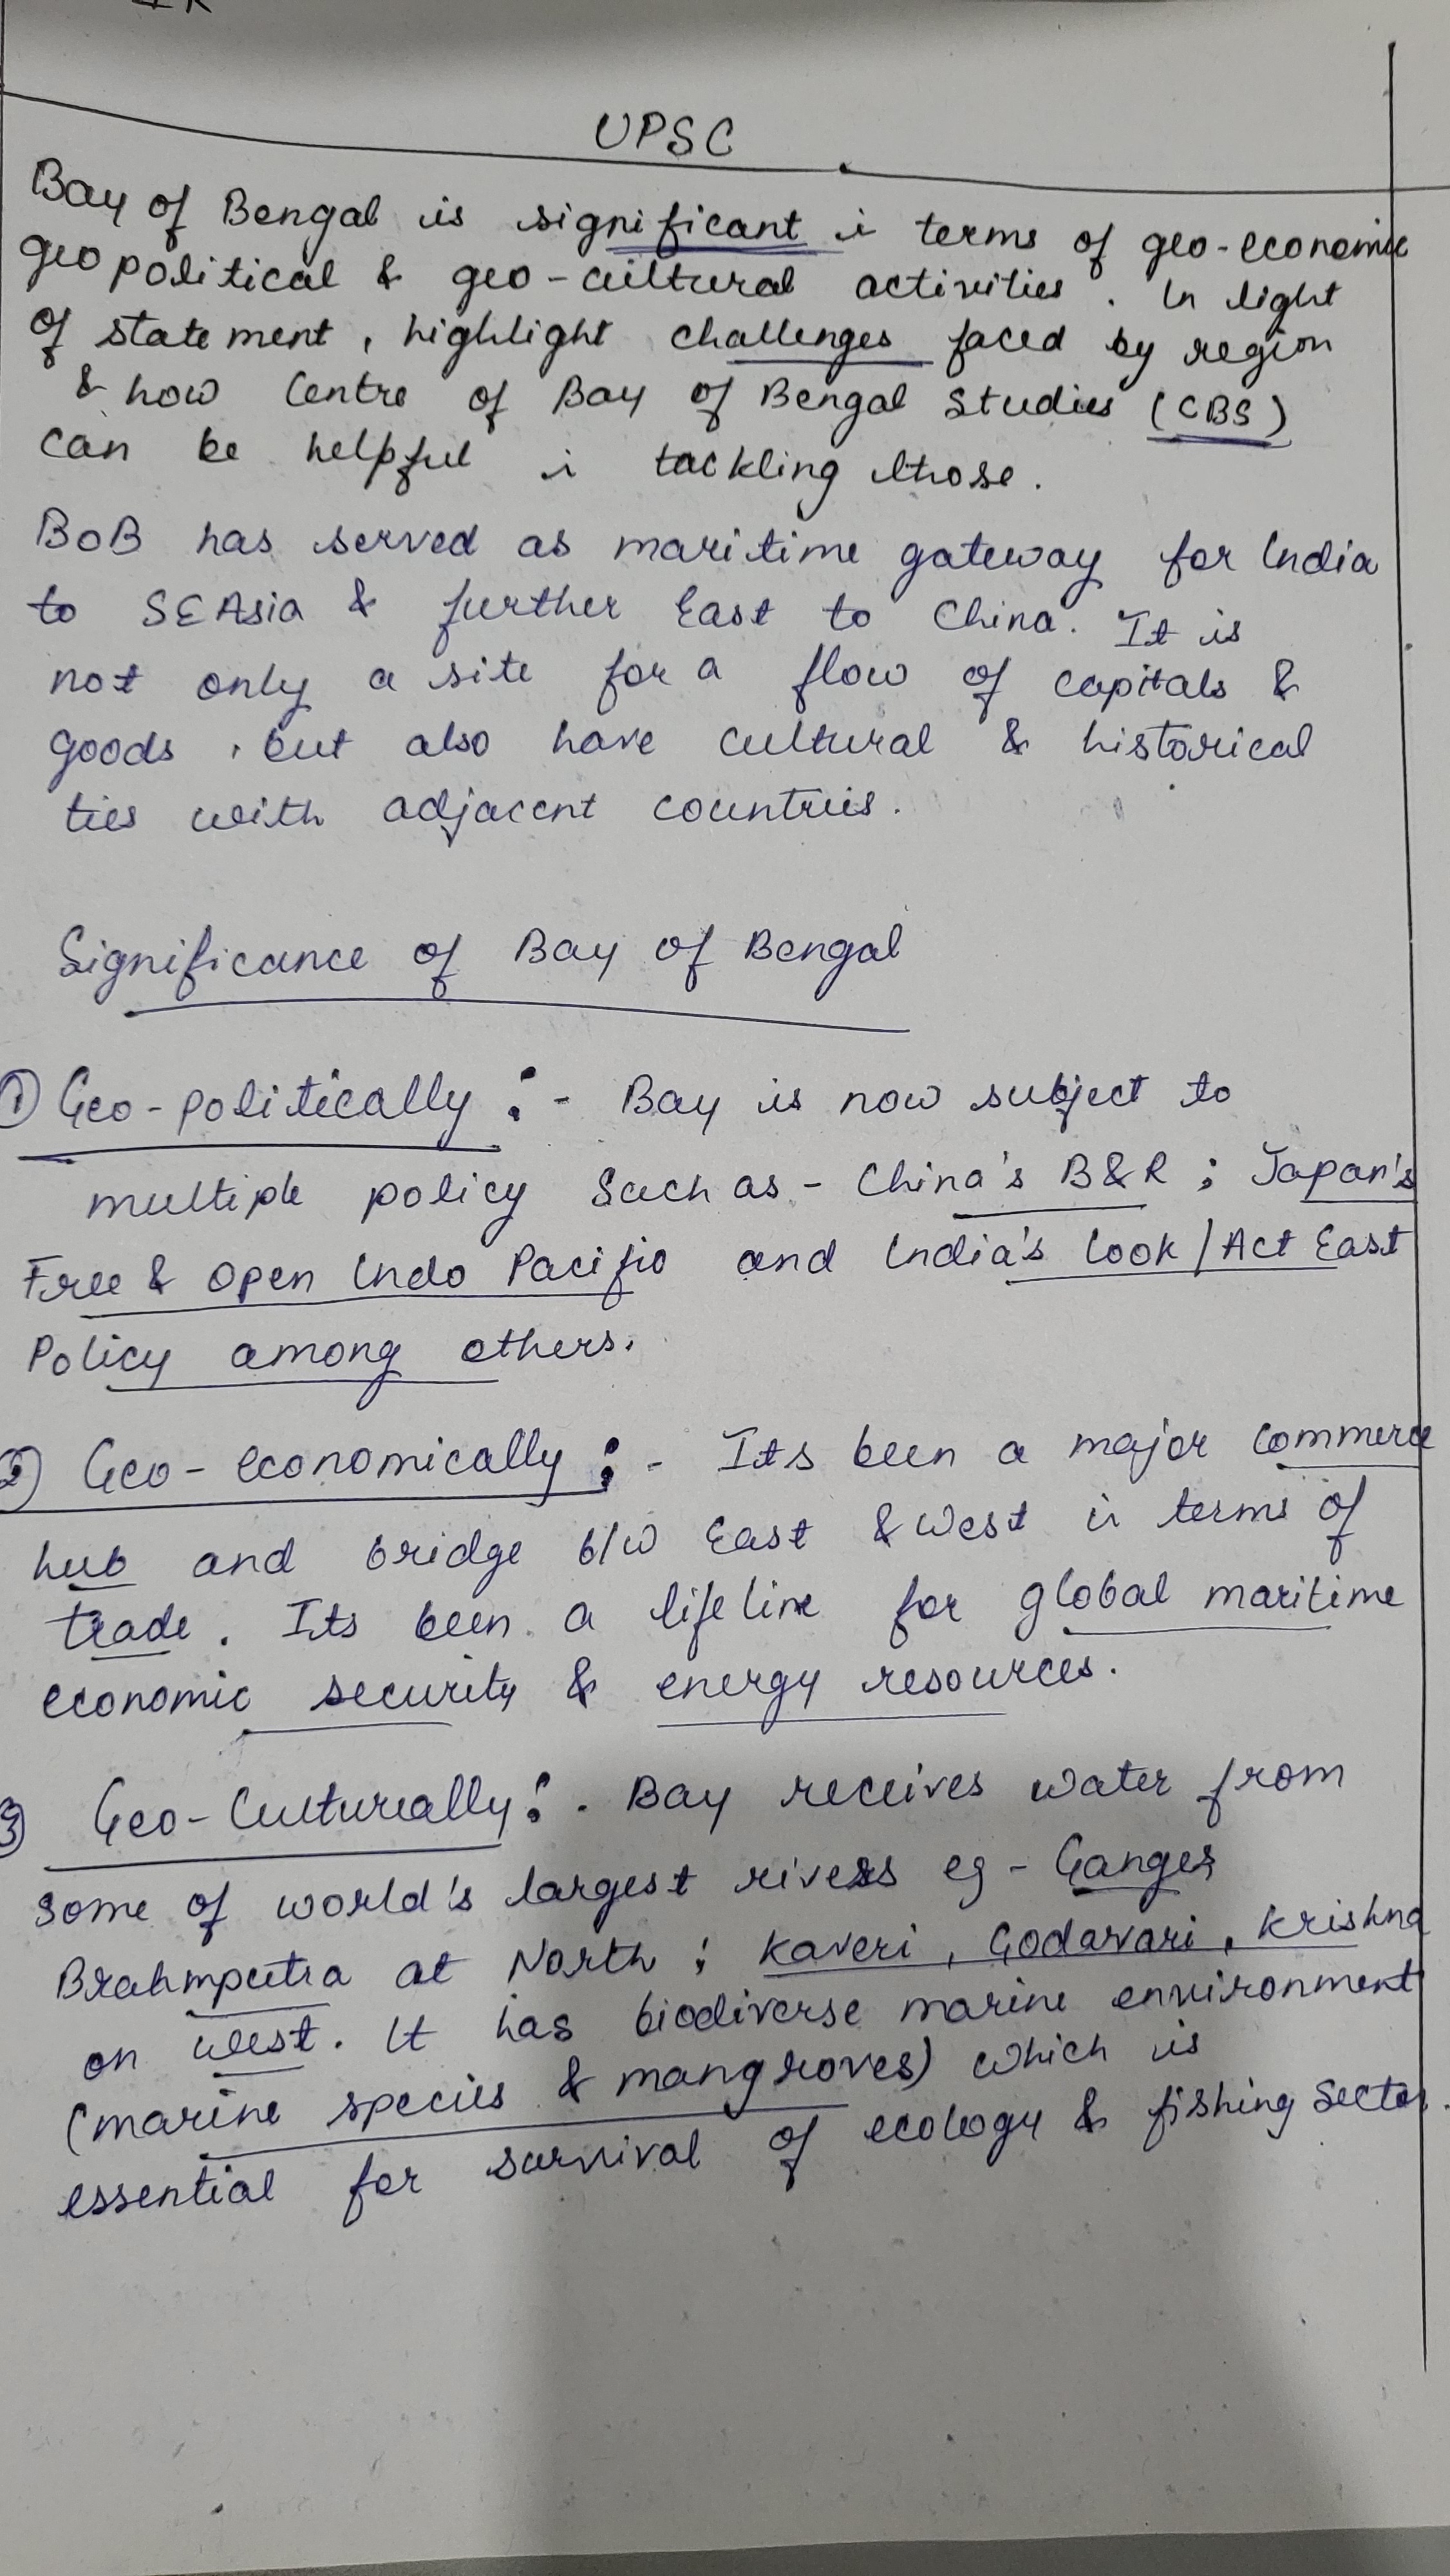 UPSC
Bay of Bengal is significant i terms of geo-economic
geopolitical & geo-cultural activities. In light
of statement, highlight challenges faced by region
& how Centre of Bay of Bengal Studies (CBS)
can be helpful i tackling those.
BoB has served as maritime gateway for India
to SE Asia & further East to China. It is
not only a site for a flow of capitals &
goods, but also have cultural & historical
ties with adjacent countries.
Significance of Bay of Bengal
① Geo-politically :- Bay is now subject to
multiple policy Such as - China's B&R ; Japan's
Free & Open Indo Pacific and India's Look/Act East
Policy among others.
② Geo-economically :- Its been a major commerce
hub and bridge b/w East & West i terms of
trade. Its been a lifeline for global maritime
economic security & energy resources.
③ Geo-Culturally :- Bay receives water from
some of world's largest rivers eg - Ganges
Brahmputra at North ; Kaveri, Godarvari, Krishna
on west. It has biodiverse marine environment
(marine species & mangroves) which is
essential for survival of ecology & fishing Sector.